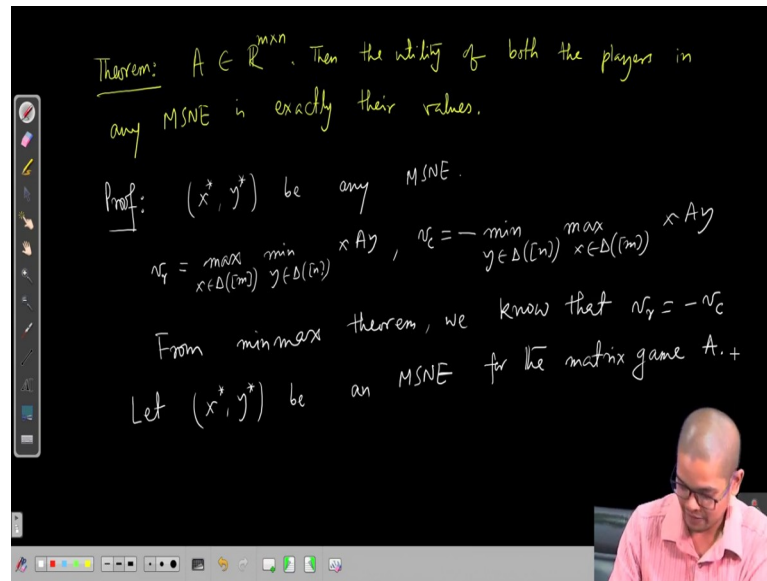 Theorem: A ∈ ℝ^{m×n}. Then the utility of both the players in
any MSNE is exactly their values.
Proof: (x*, y*) be any MSNE.
v_r = max_{x∈Δ([m])} min_{y∈Δ([n])} x A y, v_c = − min_{y∈Δ([n])} max_{x∈Δ([m])} x A y
From minmax theorem, we know that v_r = −v_c
Let (x*, y*) be an MSNE for the matrix game A.